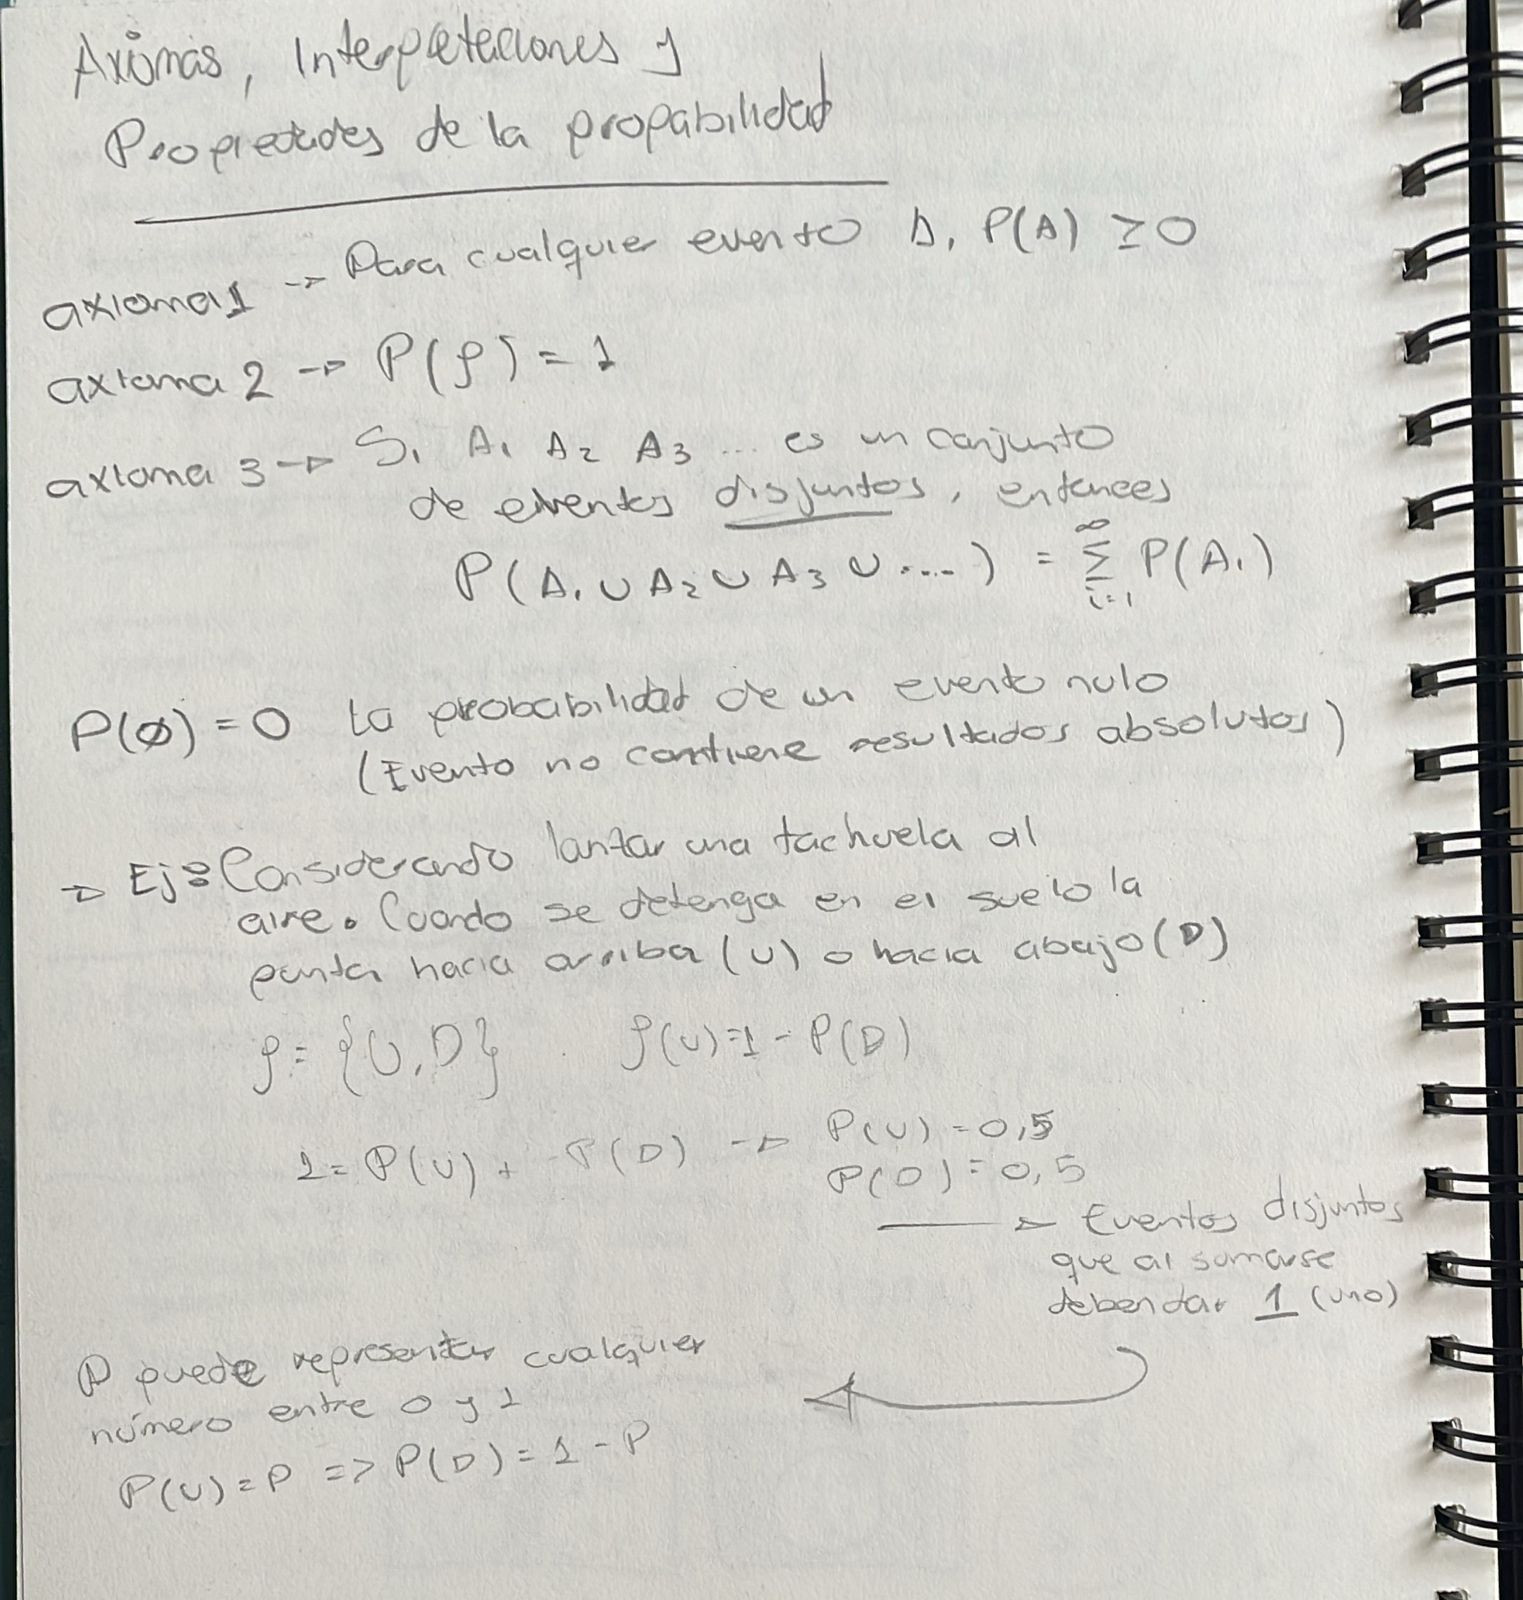 Axiomas, Interpretaciones y
Propiedades de la propabilidad
axioma 1 → Para cualquier evento A, P(A) ≥ 0
axioma 2 → P(ρ) = 1
axioma 3 → Si A₁ A₂ A₃ ... es un conjunto
de eventos disjuntos, entonces
P(A₁ ∪ A₂ ∪ A₃ ∪ ....) = ∞ Σ i=1 P(Aᵢ)
P(ø) = 0 la probabilidad de un evento nulo
(Evento no contiene resultados absolutos)
→ Ej: Considerando lanzar una tachuela al
aire. Cuando se detenga en el suelo la
punta hacia arriba (U) o hacia abajo (D)
ρ = {U, D} ρ(U) = 1 - P(D)
1 = P(U) + P(D) → P(U) = 0,5
P(D) = 0,5
→ Eventos disjuntos
que al sumarse
deben dar 1 (uno)
P puede representar cualquier
número entre 0 y 1
P(U) = P => P(D) = 1 - P